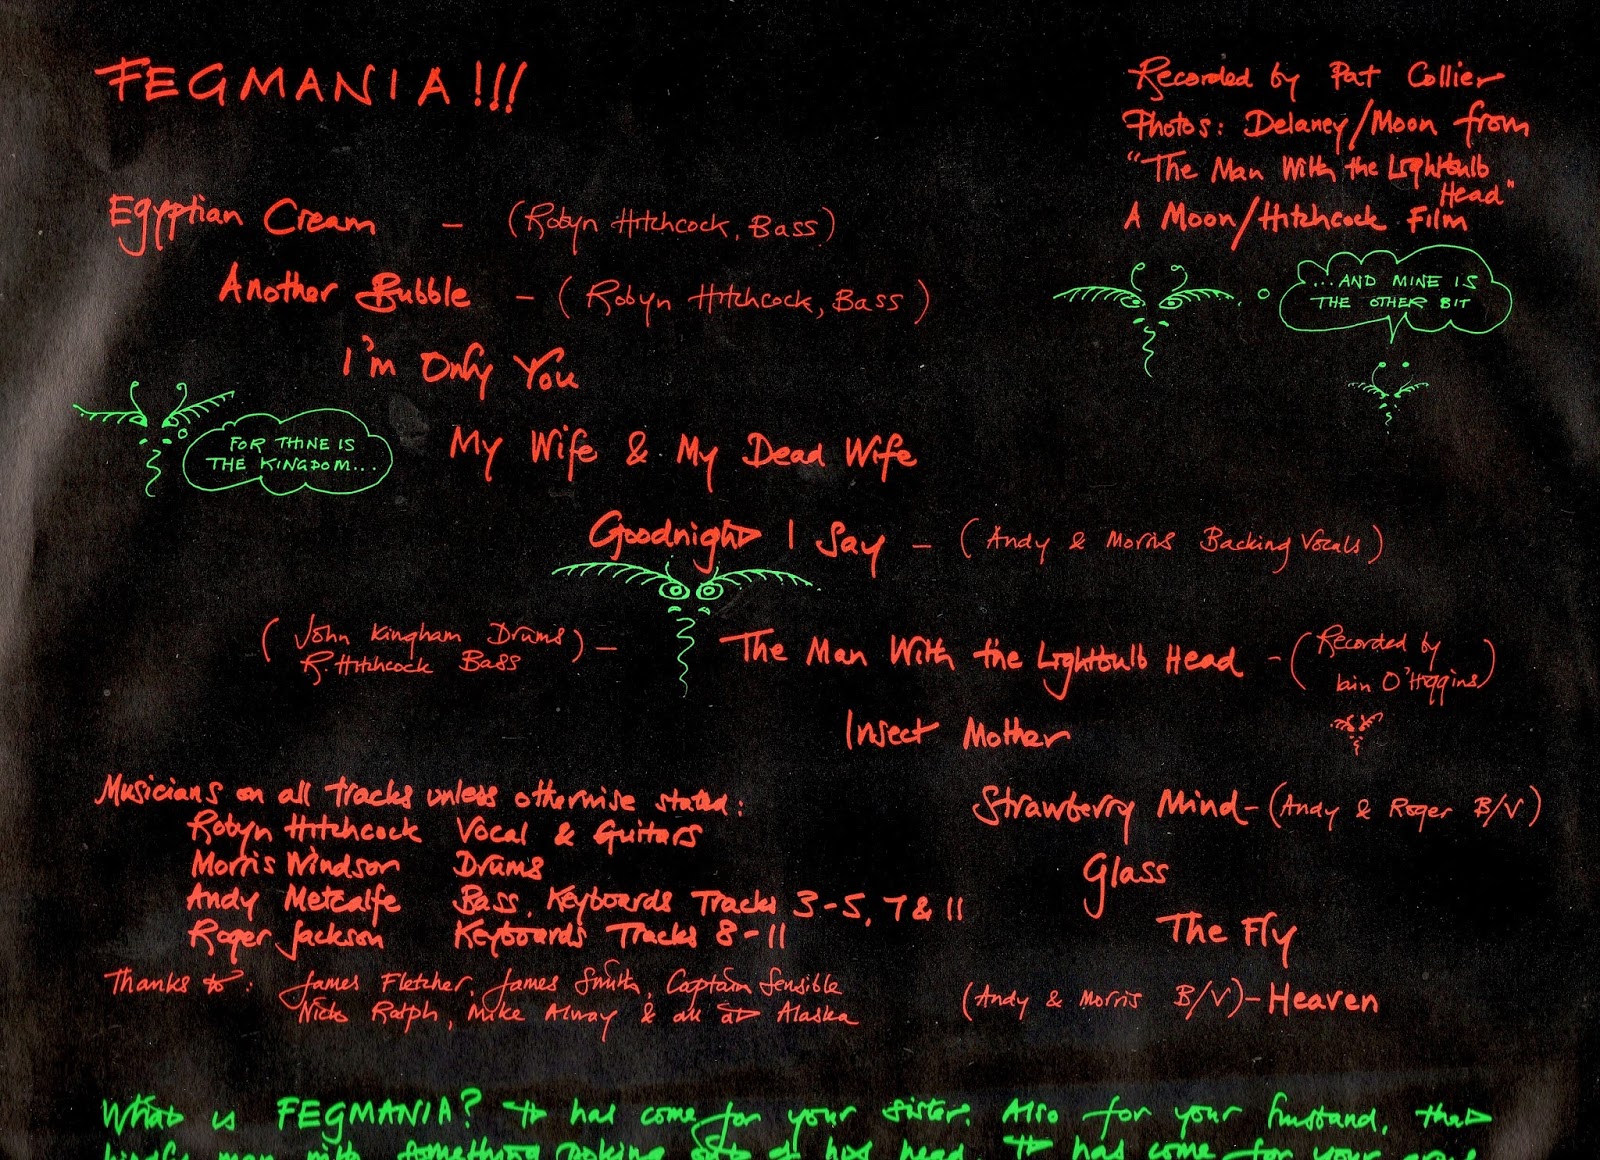 FEGMANIA!!!
Recorded by Pat Collier
Photos: Delaney/Moon from
"The Man With the Lightbulb
Head"
A Moon/Hitchcock Film
Egyptian Cream - (Robyn Hitchcock, Bass)
Another Bubble - (Robyn Hitchcock, Bass)
...AND MINE IS
THE OTHER BIT
I'm Only You
FOR THINE IS
THE KINGDOM...
My Wife & My Dead Wife
Goodnight I Say - (Andy & Morris Backing Vocals)
(John Kingham Drums
R. Hitchcock Bass) - The Man With the Lightbulb Head - (Recorded by
Iain O'Higgins)
Insect Mother
Strawberry Mind - (Andy & Roger B/V)
Glass
The Fly
(Andy & Morris B/V) - Heaven
Musicians on all tracks unless otherwise stated:
Robyn Hitchcock Vocal & Guitars
Morris Windsor Drums
Andy Metcalfe Bass, Keyboards Tracks 3-5, 7 & 11
Roger Jackson Keyboards Tracks 8-11
Thanks to: James Fletcher, James Smith, Captain Sensible
Nick Ralph, Mike Alway & all at Alaska
What is FEGMANIA? It has come for your sister. Also for your husband, that
kindly man with something poking out of his head. It has come for your